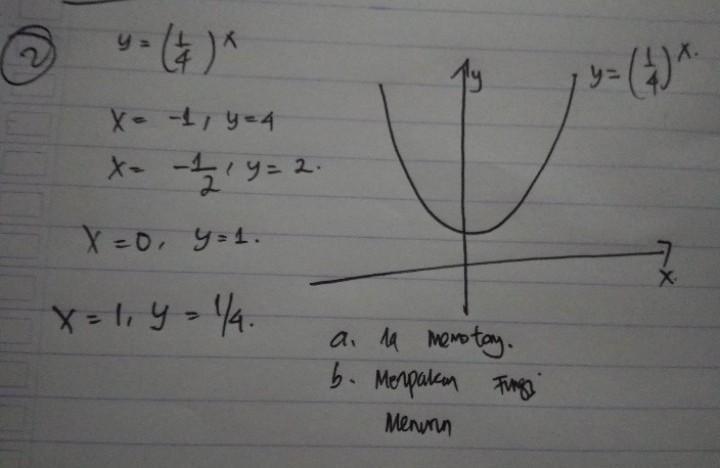 2
y = (1/4)^x
x = -1, y = 4
x = -1/2, y = 2.
x = 0, y = 1.
x = 1, y = 1/4.
y
y = (1/4)^x.
x
a. Ia memotong.
b. Merpakan Fungsi
Menurun